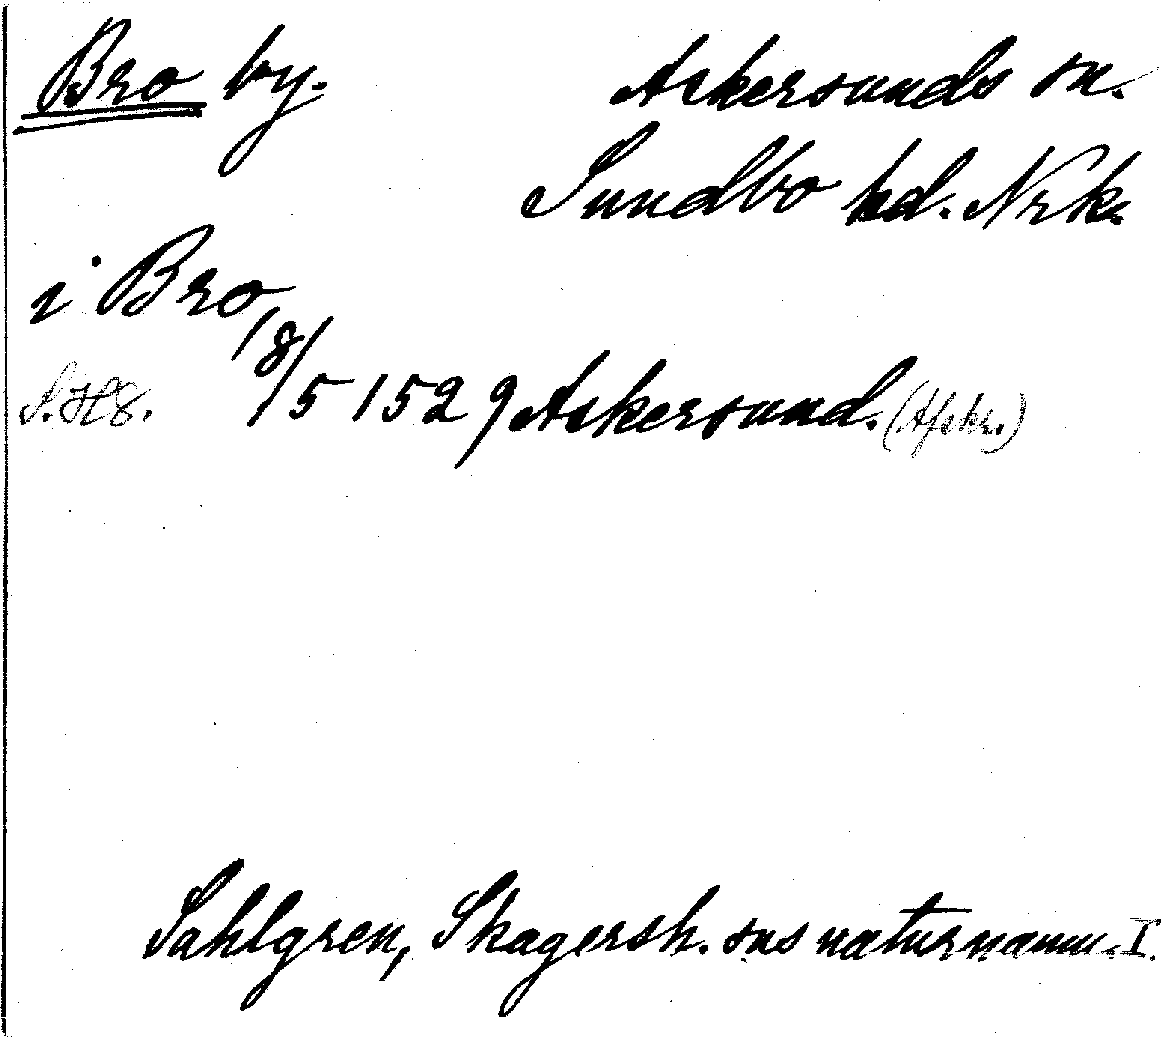 Bro by. Askersunds sn.
Sundbo hd. Nrk.
i Bro
18/5 1529 Askersund. (Afskr.)
Sahlgren, Skagersh. sns naturnamn. I.